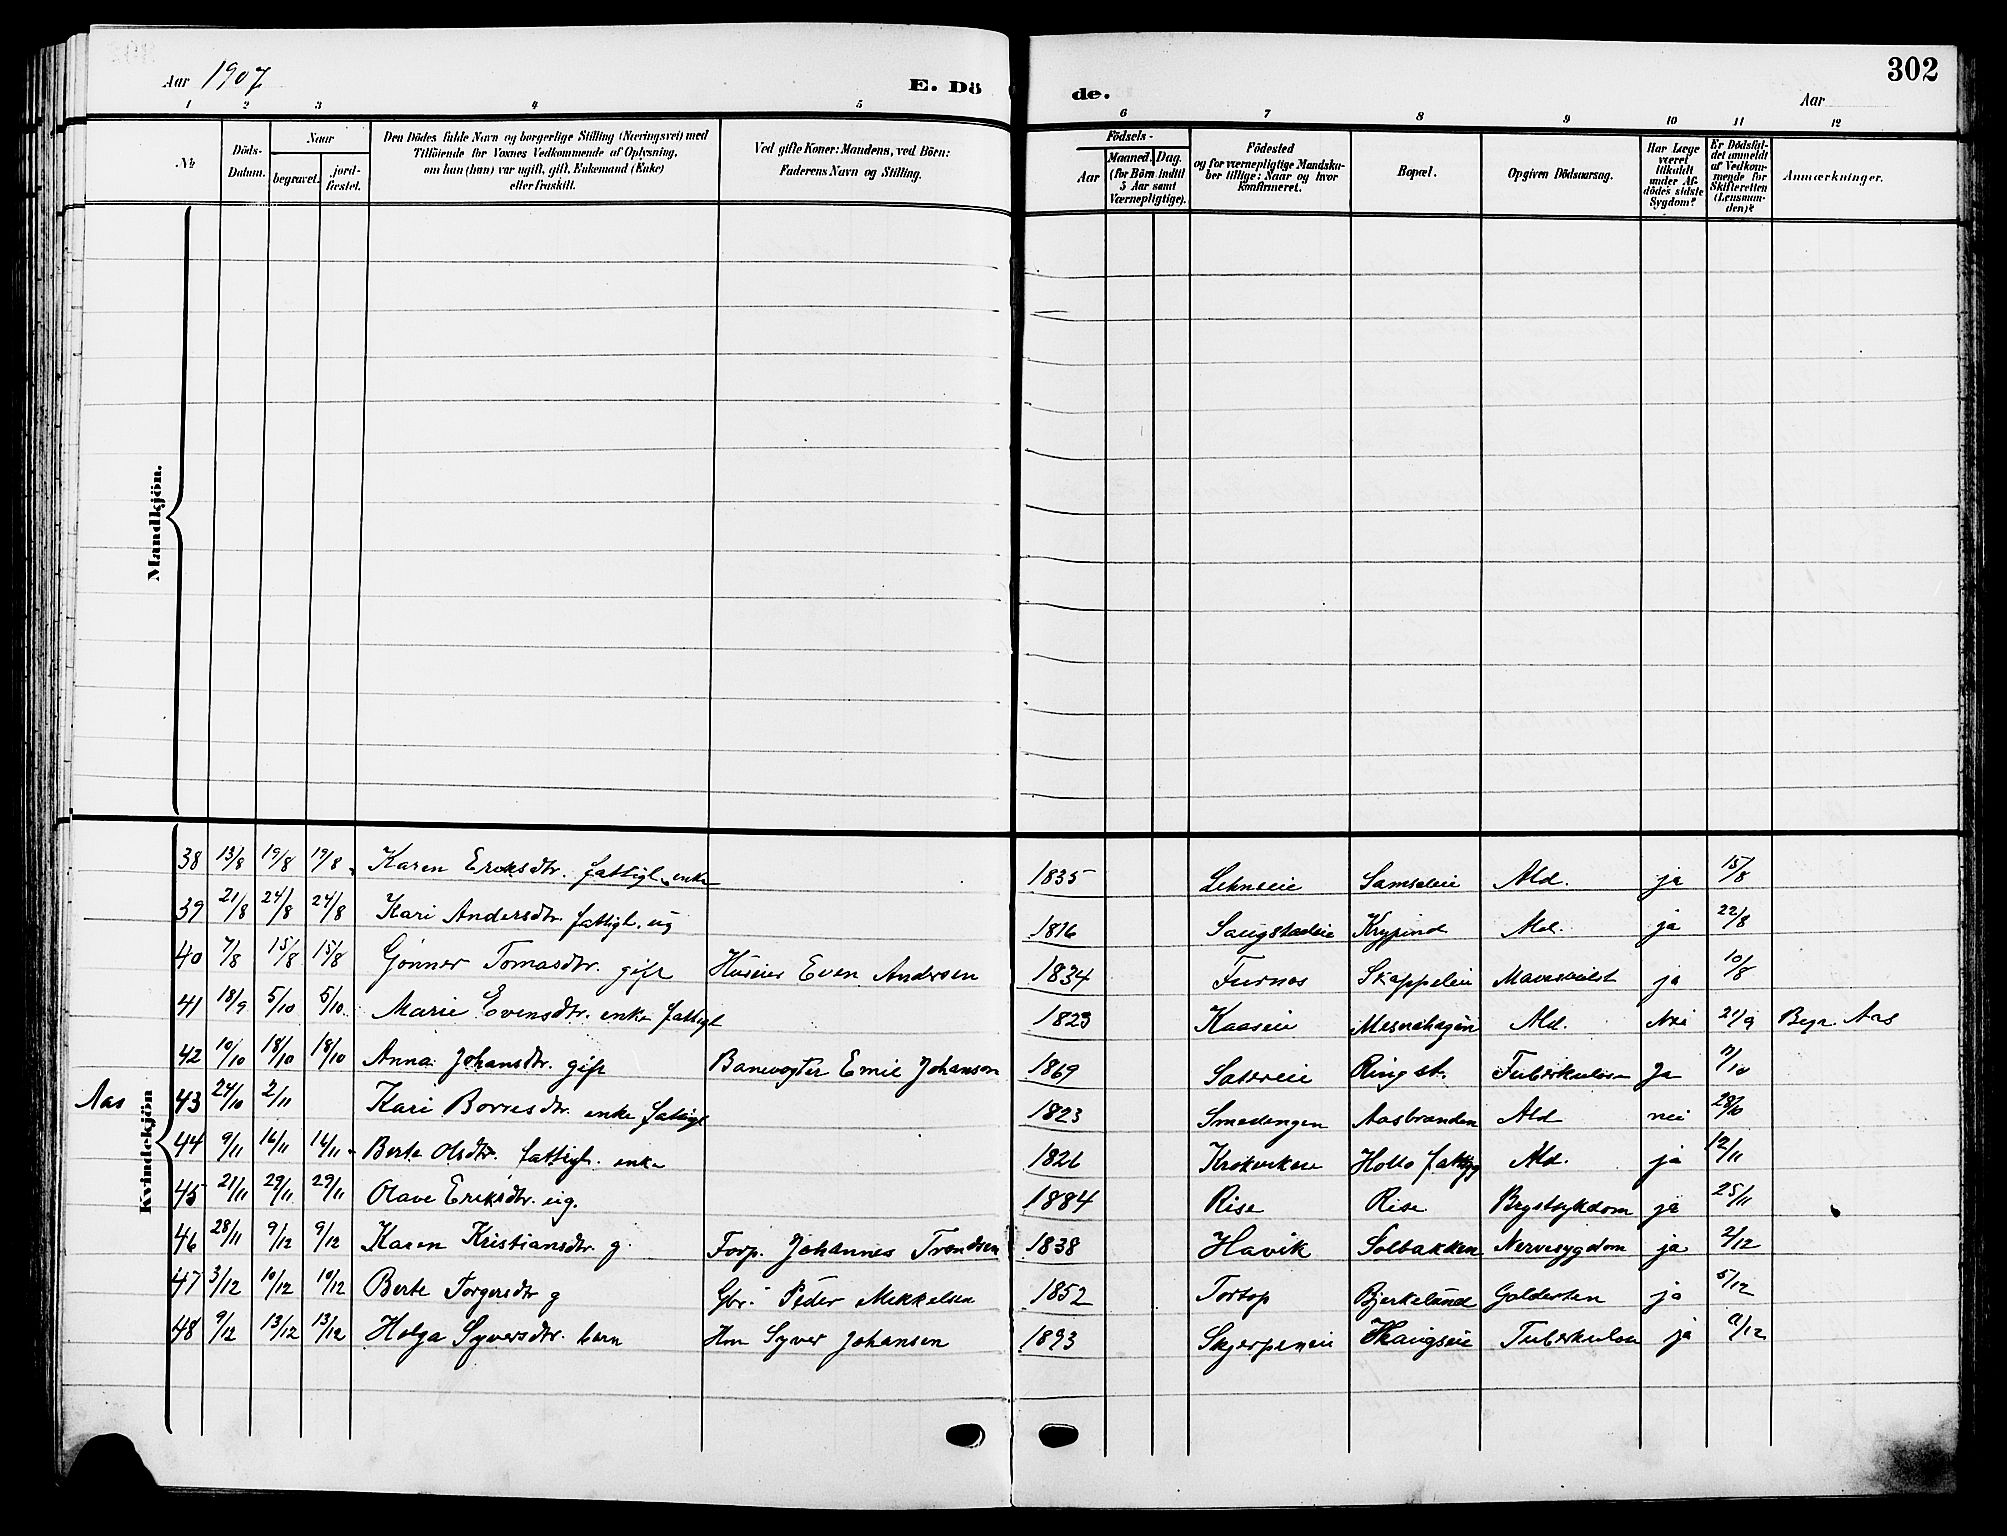 Aar 1907 E. Dö de. Aar 302
1 2 3 4 5 6 7 8 9 10 11 12
No.
Döds-
Datum.
Naar
begravet.
jord-
fæstet.
Den Dödes fulde Navn og borgerlige Stilling (Næringsvei) med
Tilföiende for Voxnes Vedkommende af Oplysning,
om han (hun) var ugift, gift, Enkemand (Enke)
eller fraskilt.
Ved gifte Koner: Mandens, ved Börn:
Faderens Navn og Stilling.
Födsels-
Aar
Maaned. Dag.
(for Börn indtil
5 Aar samt
Værnepligtige).
Födested
og for værnepligtige Mandska-
ber tillige: Naar og hvor
konfirmeret.
Bopæl.
Opgiven Dödsaarsag.
Har Læge
været
tilkaldt
under Af-
dödes sidste
Sygdom?
Er Dödsfal-
det anmeldt
af Vedkom-
mende for
Skifteretten
(Lensman-
den)?
Anmærkninger.
Mandkjön.
Kvindekjön
38 13/8 19/8 19/8 Karen Eriksdtr. fattigl. enke 1835 Lehneie Samseleie Ald. ja 15/8
39 21/8 24/8 24/8 Kari Andersdtr. fattigl. ug 1816 Saugstadeie Krypind Ald. ja 22/8
40 7/8 15/8 15/8 Gönner Tomasdtr. gift Huseier Even Andersen 1834 Furnes Skappeleie ja 10/8
41 18/9 5/10 5/10 Marie Evensdtr. enke fattigl 1823 Kaaseie Mesnahagen Ald. Nei 21/9 Begr. Aas
42 10/10 18/10 18/10 Anna Johansdtr. gift Banevogter Emil Johansen 1869 Sætereie Ring st. Tuberkulose Ja 11/10
Aas 43 24/10 2/11 Kari Borresdtr. enke fattigl 1823 Smedengen Aasbranden Ald nei 28/10
44 9/11 16/11 16/11 Berte Olsdtr. fattigl. enke 1826 Holto fattigg Ald. ja 12/11
45 21/11 29/11 29/11 Olave Eriksdtr. ug. 1884 Rise Rise Brystsykdom ja 25/11
46 28/11 9/12 9/12 Karen Kristiansdtr. g. Forp. Johannes Trondsen 1838 Havik Solbakken Nervesygdom ja 2/12
47 3/12 10/12 10/12 Berte Torgersdtr g Gbr. Peder Mikkelsen 1852 Tortop Bjerkelund Galdesten ja 5/12
48 9/12 13/12 13/12 Helga Syversdtr. barn Hm Syver Johansen 1893 Skjerpeneie Tuberkulose ja 9/12